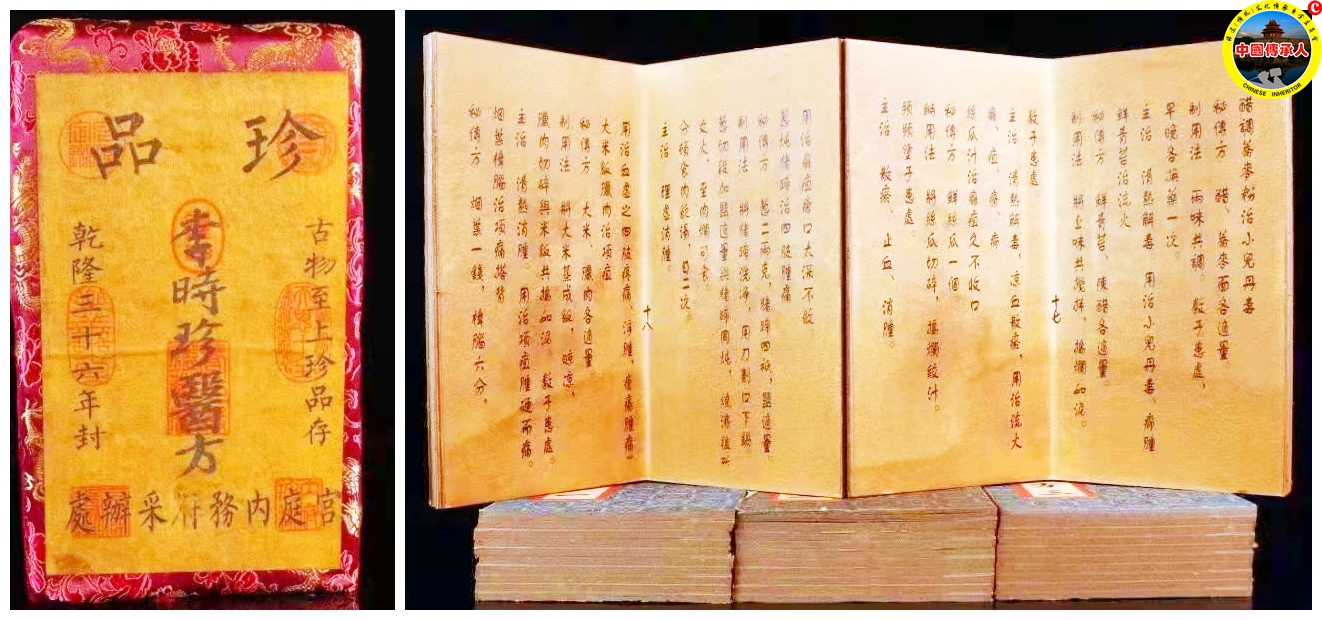 珍品
古物至上珍品存
李時珍醫方
乾隆三十六年封
宮庭內務府采辦處
醋調蕎麥粉治小兒丹毒
秘傳方 醋、蕎麥面各適量
制用法 兩味共調。敷于患處，
早晚各換藥一次。
主治 清熱解毒 用治小兒丹毒、癤腫
鮮青苔治流火
秘傳方 鮮青苔、陳醋各適量。
制用法 將上味共攪拌，搗爛如泥。
敷于患處
主治 清熱解毒，涼血散瘀，用治流火
絲瓜汁治瘡痘久不收口
秘傳方 鮮絲瓜一個。
制用法 將絲瓜切碎，搗爛絞汁。
頻頻塗于患處。
主治 散瘀、止血、消腫。
十七
用治瘡痘瘡口太深不斂
蔥炖豬蹄治四肢腫痛
秘傳方 蔥二兩克，豬蹄四只，鹽適量。
制用法 將豬蹄洗淨，用刀劃口下鍋
文火，至肉爛可食
分頓食肉飲湯，日二次。
主治
十八
大米飯臘肉治項痘
秘傳方 大米、臘肉各適量
制用法 將大米蒸成飯，晾涼、
臘肉切碎與米飯共搗如泥。敷于患處。
主治 清熱消腫。用治項痘腫硬而痛。
烟葉樟腦治項痛搭背
秘傳方 烟葉一錢，樟腦六分，
中國傳承人
CHINESE INHERITOR